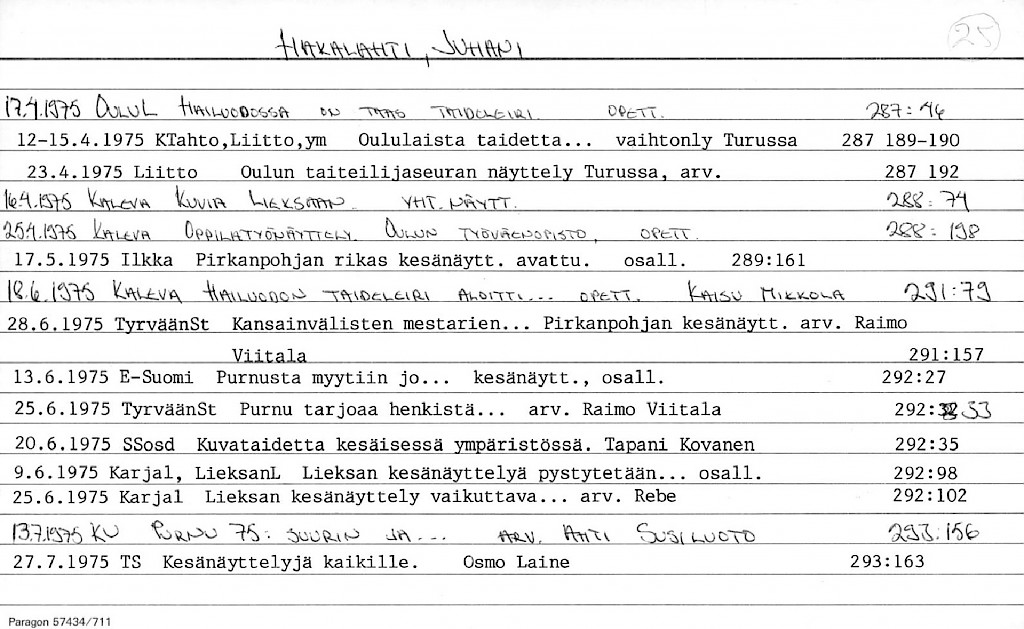 25
HAKALAHTI, JUHANI
17.4.1975 OULUL HAILUODOSSA ON TAAS TAIDELEIRI. OPETT. 287:46
12-15.4.1975 KTahto,Liitto,ym Oululaista taidetta... vaihtonly Turussa 287 189-190
23.4.1975 Liitto Oulun taiteilijaseuran näyttely Turussa, arv. 287 192
16.4.1975 KALEVA KUVIA LIEKSAAN. YHT.NÄYTT. 288:74
25.4.1975 KALEVA OPPILATYÖNÄYTTELY. OULUN TYÖVÄENOPISTO, OPETT. 288:198
17.5.1975 Ilkka Pirkanpohjan rikas kesänäytt. avattu. osall. 289:161
18.6.1975 KALEVA HAILUODON TAIDELEIRI ALOITTI... OPETT. KAISU MIKKOLA 291:79
28.6.1975 TyrväänSt Kansainvälisten mestarien... Pirkanpohjan kesänäytt. arv. Raimo
Viitala 291:157
13.6.1975 E-Suomi Purnusta myytiin jo... kesänäytt., osall. 292:27
25.6.1975 TyrväänSt Purnu tarjoaa henkistä... arv. Raimo Viitala 292:33
20.6.1975 SSosd Kuvataidetta kesäisessä ympäristössä. Tapani Kovanen 292:35
9.6.1975 Karjal, LieksanL Lieksan kesänäyttelyä pystytetään... osall. 292:98
25.6.1975 Karjal Lieksan kesänäyttely vaikuttava... arv. Rebe 292:102
13.7.1975 KU PURNU 75: SUURIN JA... ARV. AHTI SUSILUOTO 293:156
27.7.1975 TS Kesänäyttelyjä kaikille. Osmo Laine 293:163
Paragon 57434/711